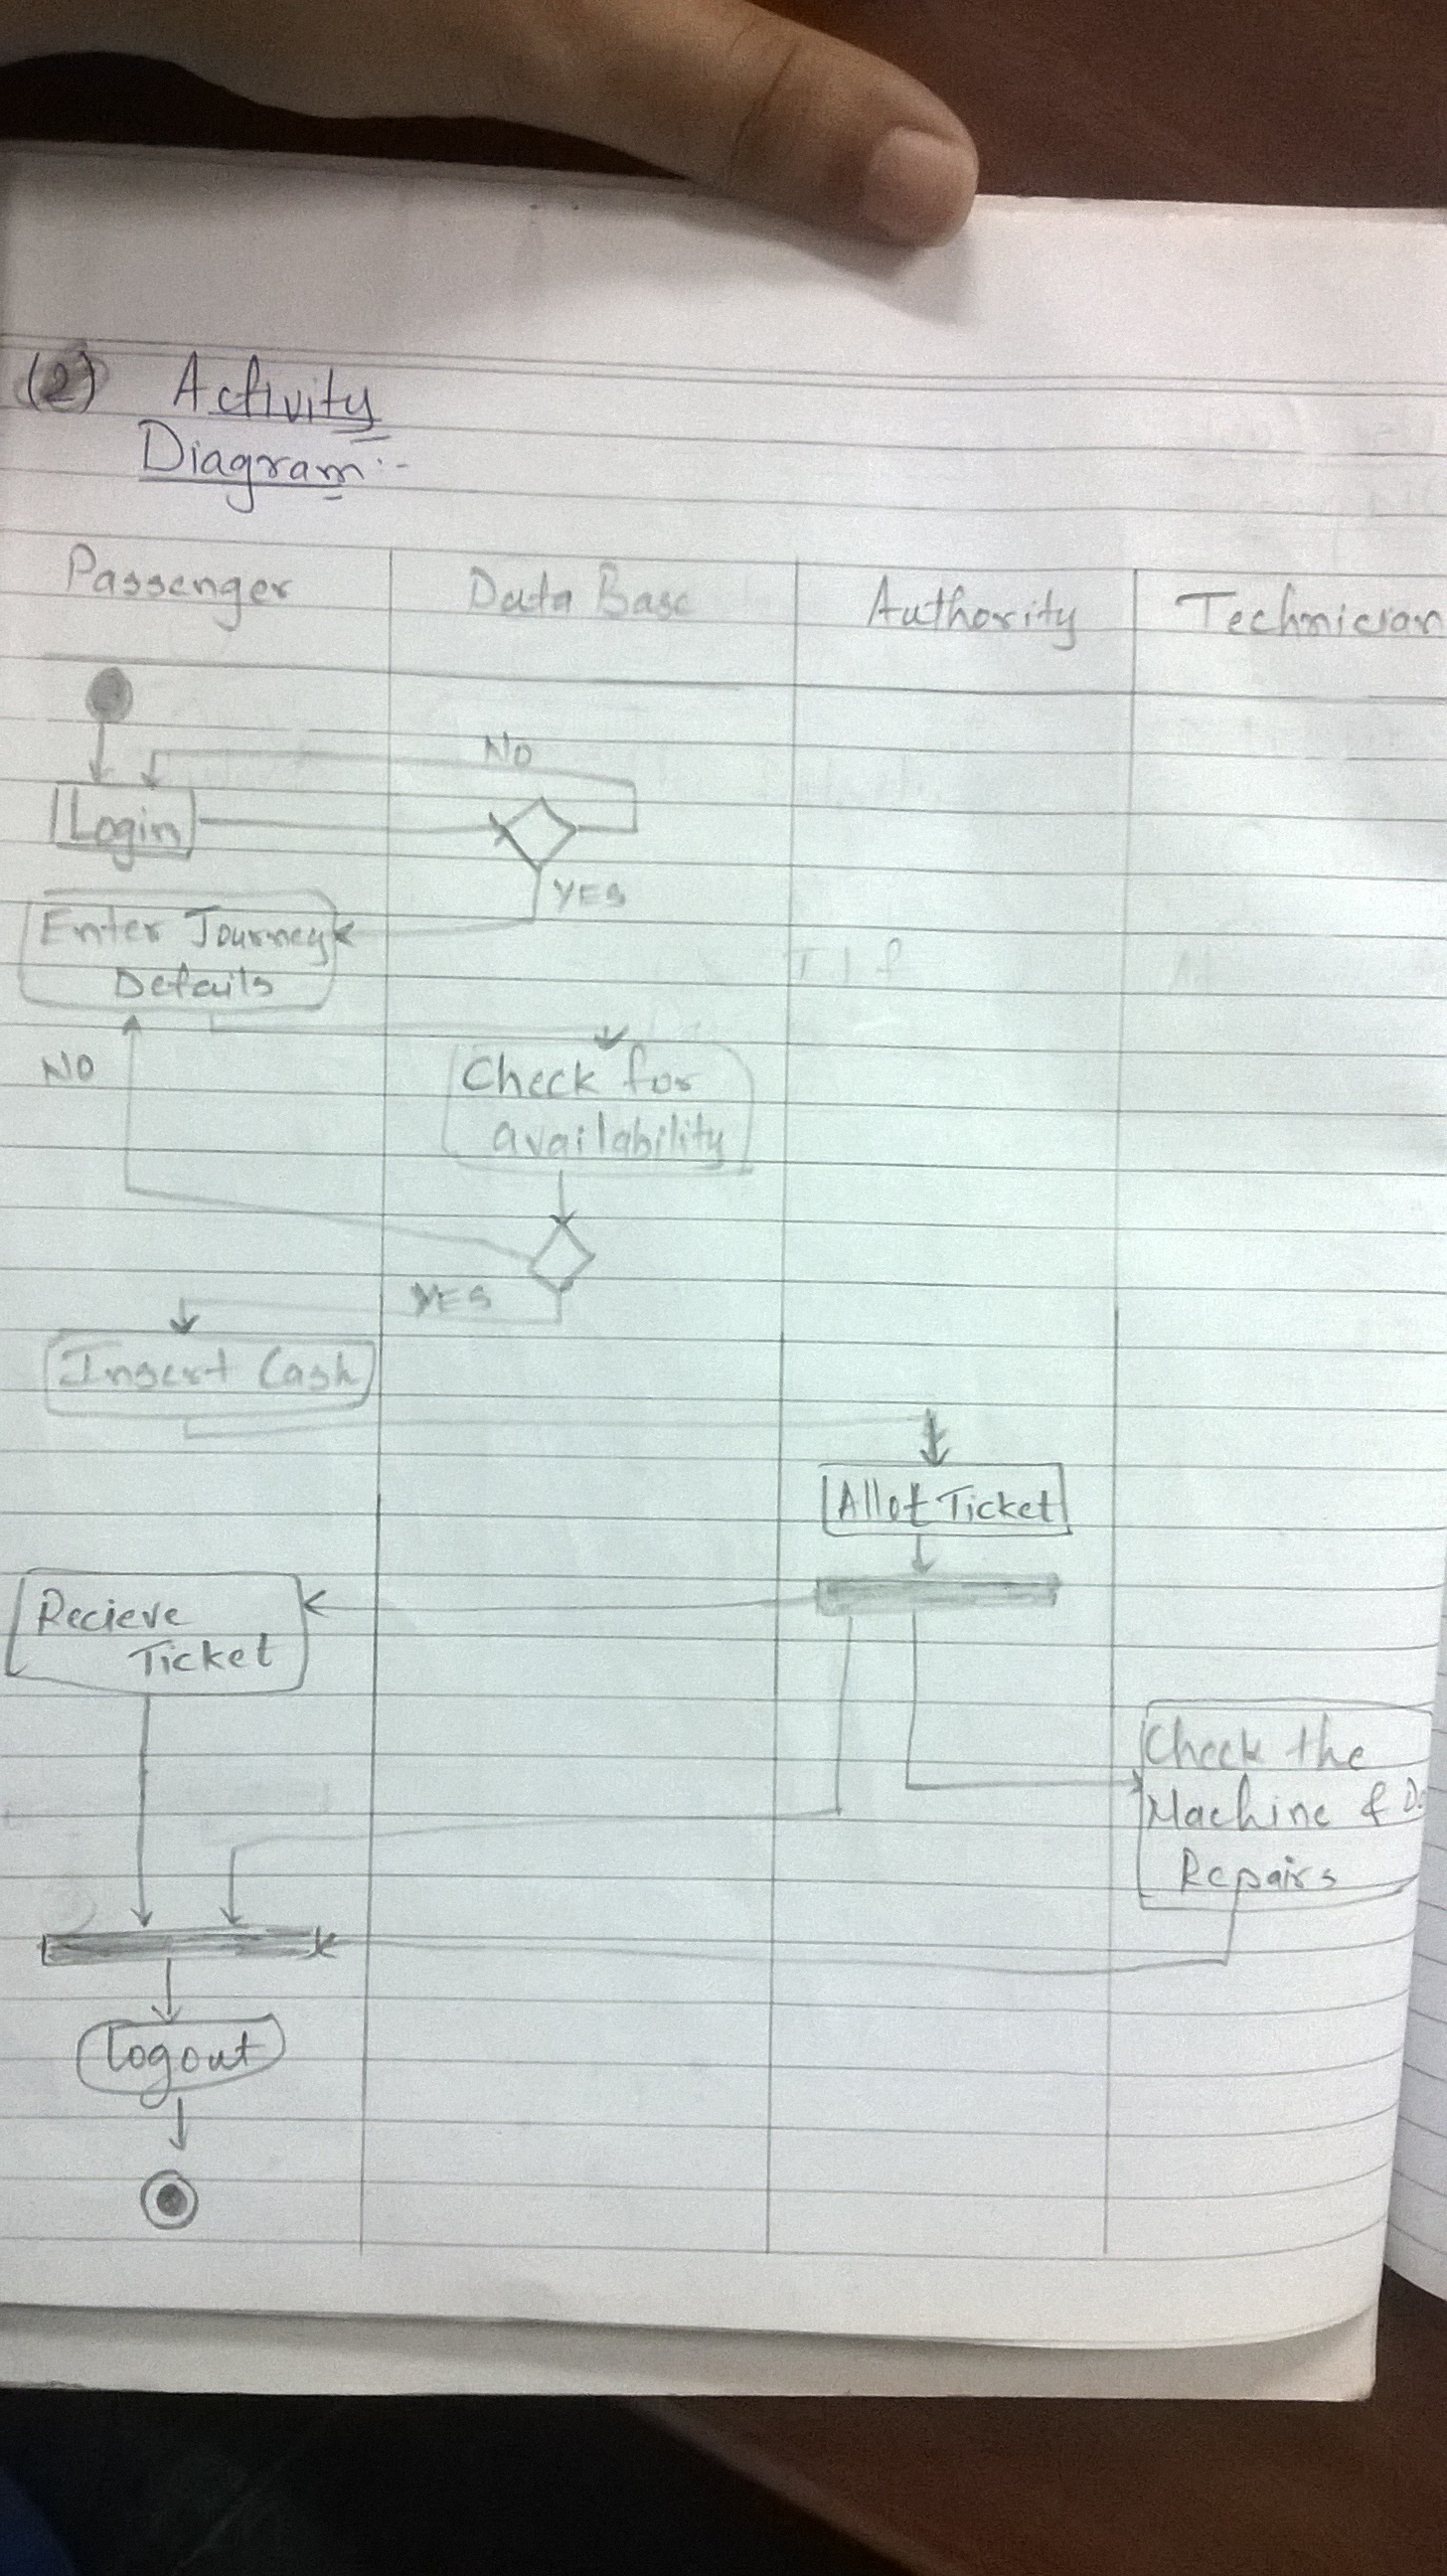 (2) Activity
Diagram:-
Passenger Data Base Authority Technician
NO
Login
YES
Enter Journey
Details
NO
Check for
availability
YES
Insert Cash
Allot Ticket
Recieve
Ticket
Check the
Machine & Do
Repairs
Logout